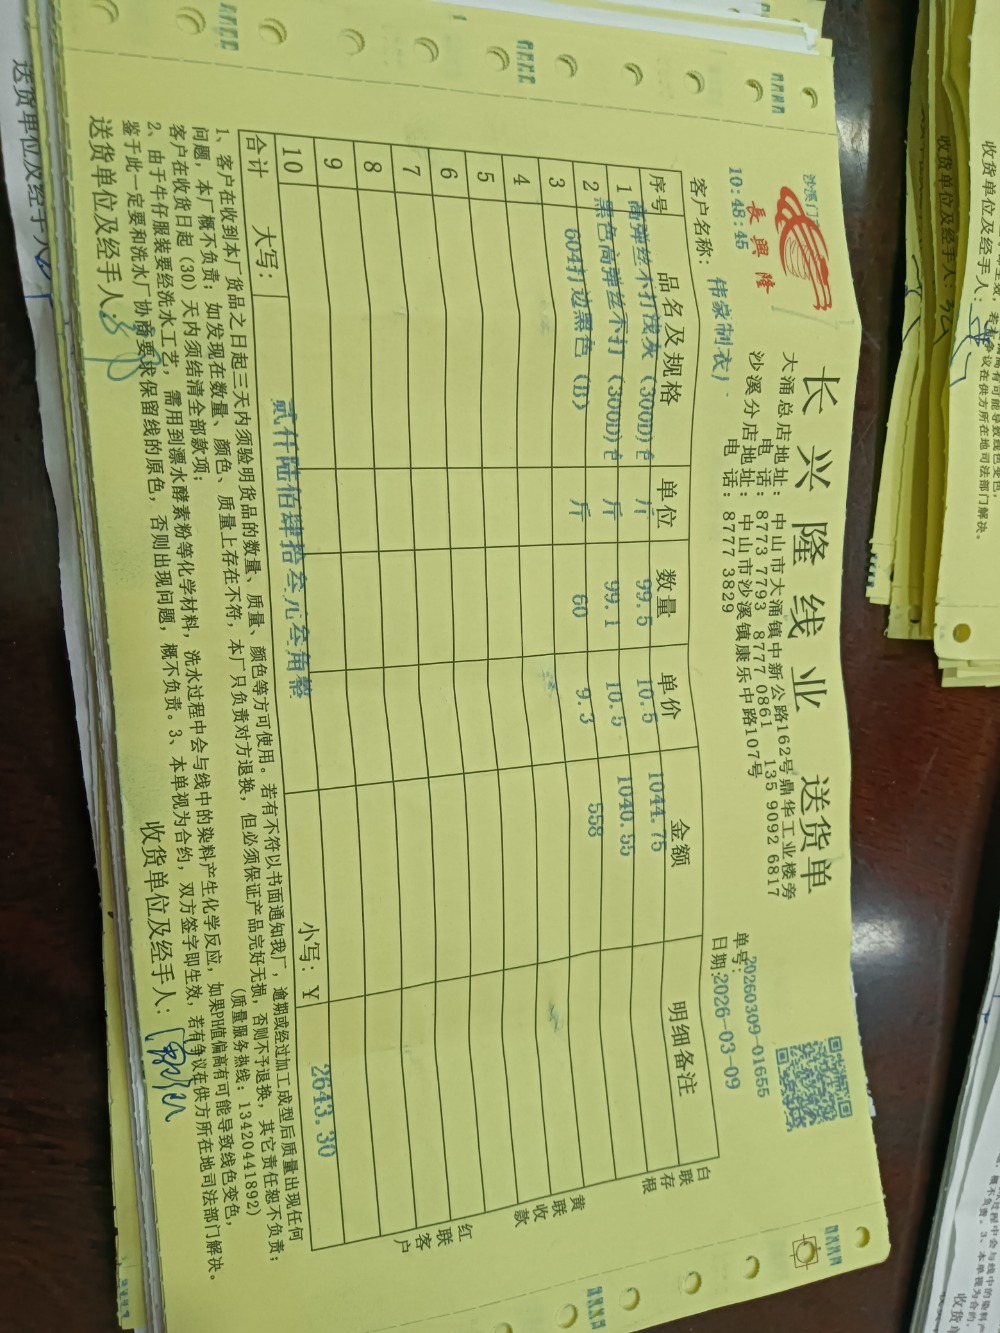 长兴隆线业 送货单
長興隆
大涌总店地址：中山市大涌镇中新公路162号鼎华工业楼旁
电话：8773 7793 8777 0861 135 9092 6817
沙溪分店地址：中山市沙溪镇康乐中路107号
电话：8777 3829
10:48:45
单号：20260309-01655
客户名称：伟豪制衣
日期：2026-03-09
序号 品名及规格 单位 数量 单价 金额 明细备注
1 高弹丝不打浅灰（300D） 斤 99.5 10.5 1044.75
2 黑色高弹丝不打（300D） 斤 99.1 10.5 1040.55
3 604打边黑色（B） 斤 60 9.3 558
4
5
6
7
8
9
10
合计 大写：贰仟陆佰肆拾叁元叁角整 小写：¥ 2643.30
白联存根
黄联收款
红联客户
1、客户在收到本厂货品之日起三天内须验明货品的数量、质量、颜色等方可使用。若有不符以书面通知我厂，逾期或经过加工成型后质量出现任何
问题，本厂概不负责；如发现在数量、颜色、质量上存在不符，本厂只负责对方退换，但必须保证产品完好无损，否则不予退换，其它责任恕不负责；
客户在收货日起（30）天内须结清全部款项； （质量服务热线：13420441892）
2、由于牛仔服装要经洗水工艺，需用到漂水酵素粉等化学材料，洗水过程中会与线中的染料产生化学反应，如果PH值偏高有可能导致线色变色，
鉴于此一定要和洗水厂协商要求保留线的原色，否则出现问题，概不负责。3、本单视为合约，双方签字即生效，若有争议在供方所在地司法部门解决。
送货单位及经手人：
收货单位及经手人：
送货单位及经手人
收货单位及经手人：
收货单位及经手人：